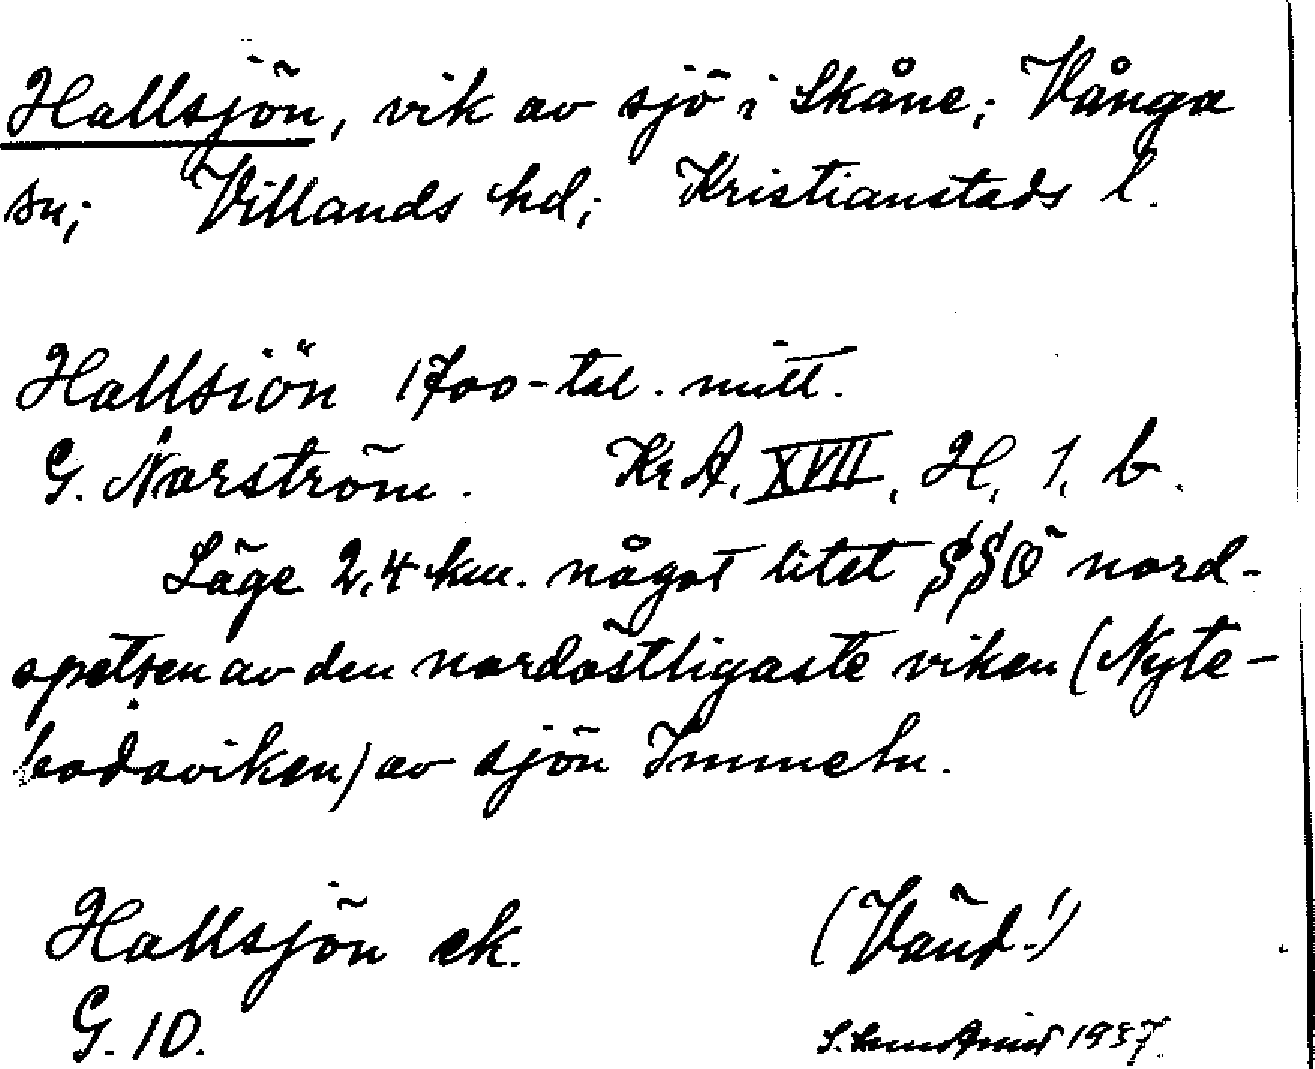 Hallsjön, vik av sjö i Skåne; Vånga
sn; Villands hd; Kristianstads l.
Hallsiön 1700-tal. mitt.
G. Norström. Kr. A. XVII, H, 1, b.
Läge 2,4 km. något litet SSÖ nord-
spetsen av den nordöstligaste viken (Nyte-
bodaviken) av sjön Immeln.
Hallsjön ek.
G. 10. (Vänd!)
S. 1937.